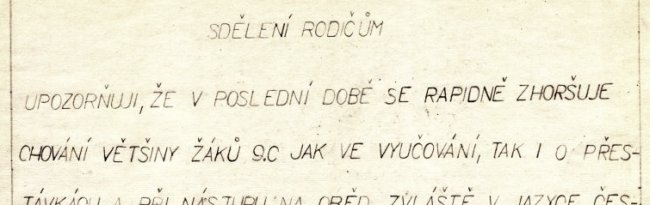 SDĚLENÍ RODIČŮM
UPOZORŇUJI, ŽE V POSLEDNÍ DOBĚ SE RAPIDNĚ ZHORŠUJE
CHOVÁNÍ VĚTŠINY ŽÁKŮ 9.C JAK VE VYUČOVÁNÍ, TAK I O PŘES-
TÁVKÁCH A PŘI NÁSTUPU NA OBĚD. ZVLÁŠTĚ V JAZYCE ČES-